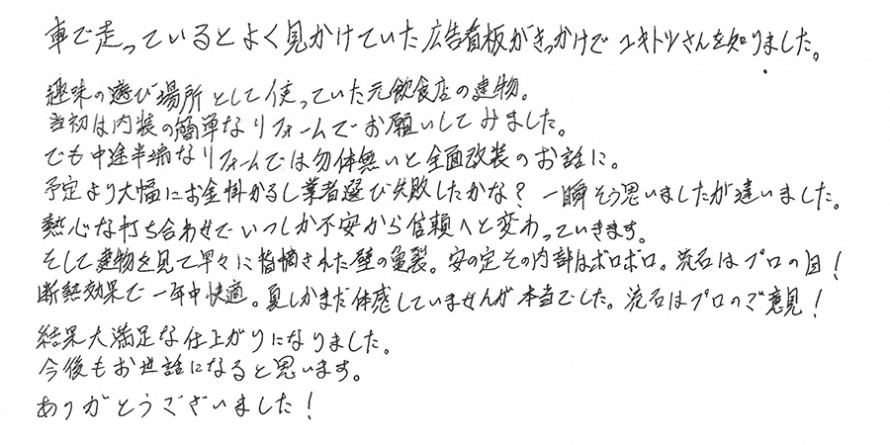 車で走っているとよく見かけていた広告看板がきっかけでユキトシさんを知りました。
趣味の遊び場所として使っていた元飲食店の建物。
当初は内装の簡単なリフォームでお願いしてみました。
でも中途半端なリフォームでは勿体無いと全面改装のお話に。
予定より大幅にお金掛かるし業者選び失敗したかな？ 一瞬そう思いましたが違いました。
熱心な打ち合わせでいつしか不安から信頼へと変わっていきます。
そして建物を見て早々に指摘された壁の亀裂。安の定その内部はボロボロ。流石はプロの目！
断熱効果で一年中快適。夏しかまだ体感していませんが本当でした。流石はプロのご意見！
結果大満足な仕上がりになりました。
今後もお世話になると思います。
ありがとうございました！